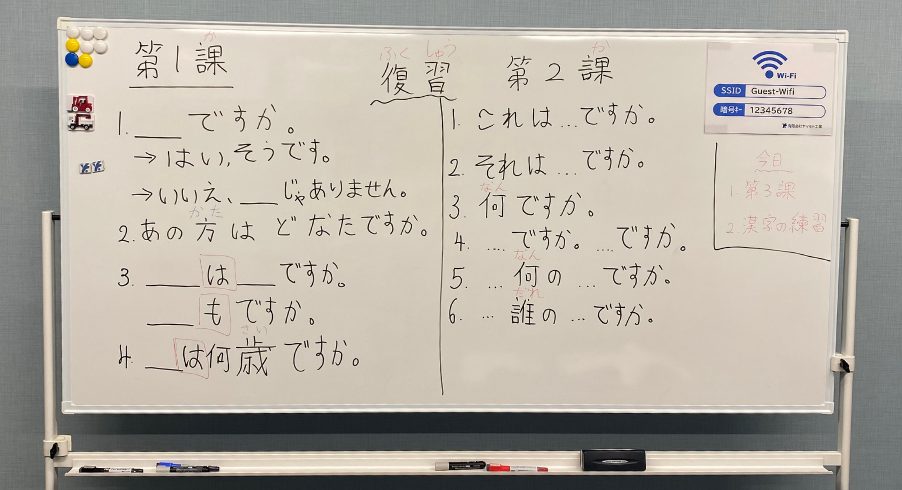 ふく しゅう
復習
か
第1課
1. ___ ですか。
→はい,そうです。
→いいえ、___じゃありません。
かた
2.あの方はどなたですか。
3 ___は___ですか。
___もですか。
さい
4.___は何歳ですか。
か
第2課
1. これは…ですか。
2. それは…ですか。
なん
3. 何ですか。
4. …ですか。…ですか。
なん
5 … 何の…ですか。
だれ
6. … 誰の…ですか。
Wi-Fi
SSID Guest-Wifi
暗号キー 12345678
今日
1. 第3課
2. 漢字の練習